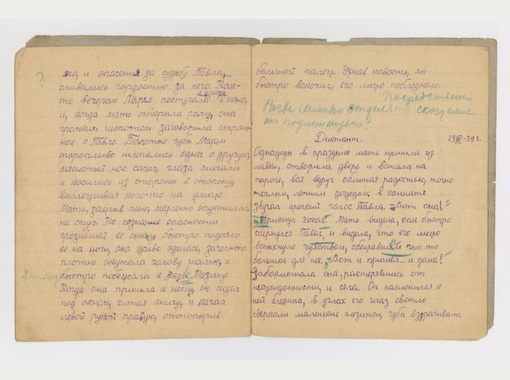 яла, и опасения за судьбу Павла
сливались гордостью за него. Как-
то вечером Марья постучала в окно,
и, когда мать открыла раму, она
громким шёпотом заговорила
о Павле. Толстые губы Марьи
торопливо шлепались одна о другую,
мясистый нос сопел, глаза мигали
и косились из стороны в сторону,
выслеживая кого-то на улице.
Мать, закрыв окно, медленно опустилась
на стул. Но сознание опасности
грозившей ее сыну быстро подняло
ее на ноги, она живо оделась, зачем-то
плотно окутала голову шалью и
быстро побежала к Феде Мазину
Когда она пришла к нему, он сидел
под окном, читая книгу, и качал
левой рукой правую, оттопырив
большой палец. Узнав новость, он
быстро вскочил, его лицо побледнело.
Диктант.
Однажды в праздник мать пришла из
лавки, отворила дверь и встала на
пороге, вся вдруг облитая радостью, точно
теплым, летним дождем, в комнате
звучал крепкий голос Павла. „Вот она!"
крикнул хохол. Мать видела, как быстро
обернулся Павел и видела, что его лицо
вспыхнуло чувством, обещавшим что-то
большое для нее. „Вот и пришел.. и дома!"
Забормотала она, растерявшись от
неожиданности, и села. Он наклонился к
ней бледный, в углах его глаз светло
сверкали маленькие слезинки, губы вздрагивали.